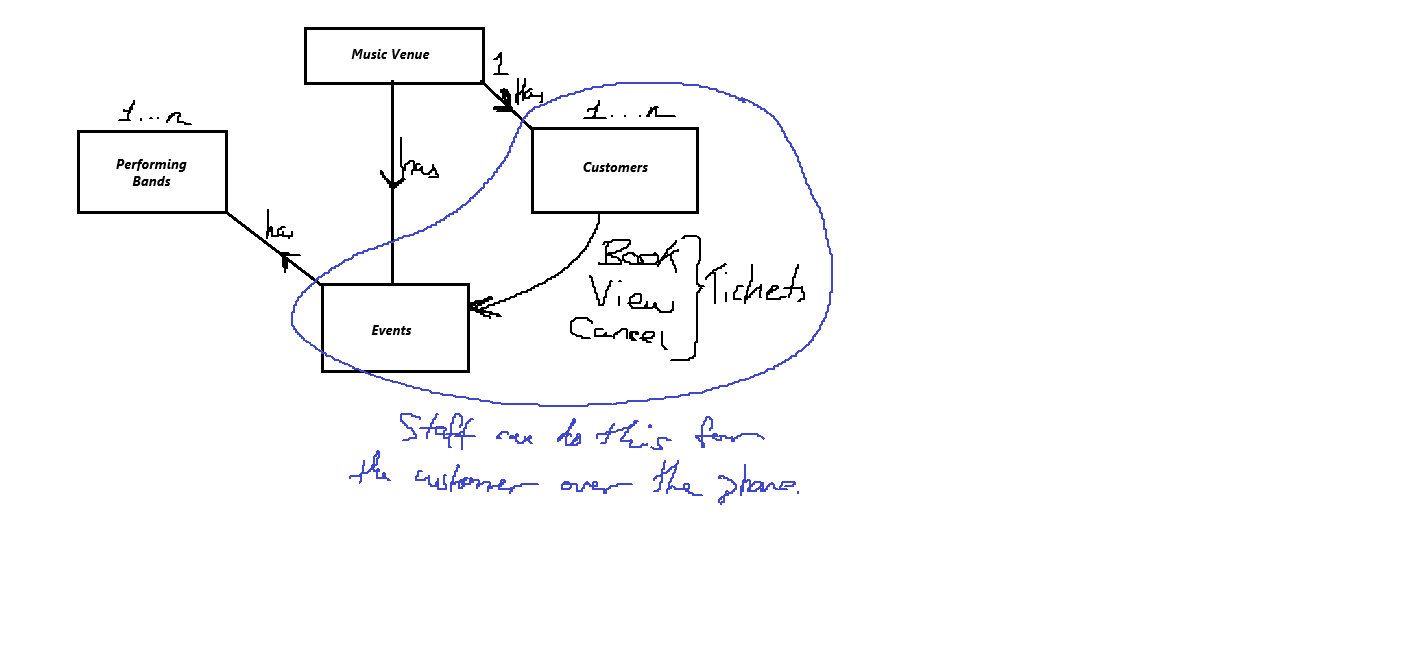 Music Venue
1
Has
1...n
1...n
Performing
Bands
Customers
has
has
Book
View
Cancel
Tickets
Events
Staff can do this for
the customer over the phone.